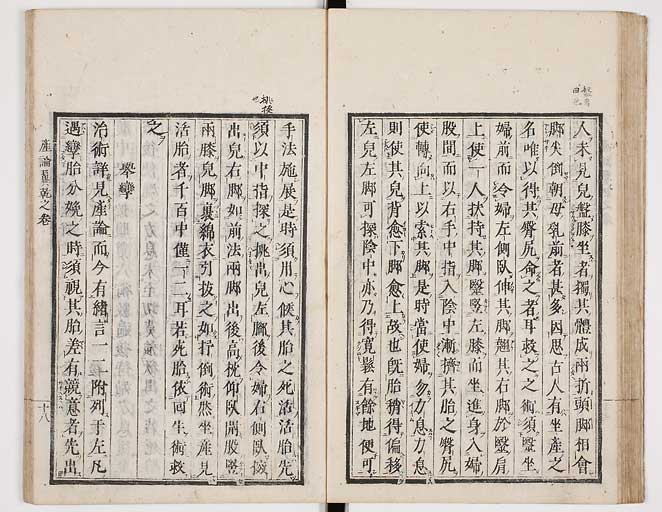 人未見兒盤膝坐者獨其體成兩折頭脚相會
脚尖倒朝母乳前者甚多因思古人有坐產之
名唯以得其臀尻命之者耳救之之術須醫坐
婦前而令婦左側臥伸其脚翹其右脚於醫肩
上使一人扶持其脚醫竪左膝而坐進身入婦
股間而以右手中指入陰中漸擠其胎之臀尻
使轉向上以索其脚是時當使婦勿力息力息
則使其兒背愈下脚愈上故也既胎稍得偏移
左兒左脚可探陰中亦乃得寬鬆有餘地便可
手法施展是時須用心候其胎之死活活胎先
須以中指探之挑出兒左膕後令婦右側臥探
出兒右脚如前法兩脚出後高枕仰臥開股竪
兩膝兒脚裹綿衣引拔之如抒倒術然坐產見
活胎者千百中僅一二耳若死胎依回生術救
之
孿
治術詳見產論而今有緒言一一附列于左凡
遇孿胎分娩之時須視其胎差有競意者先出
產論翼乾之卷
十八